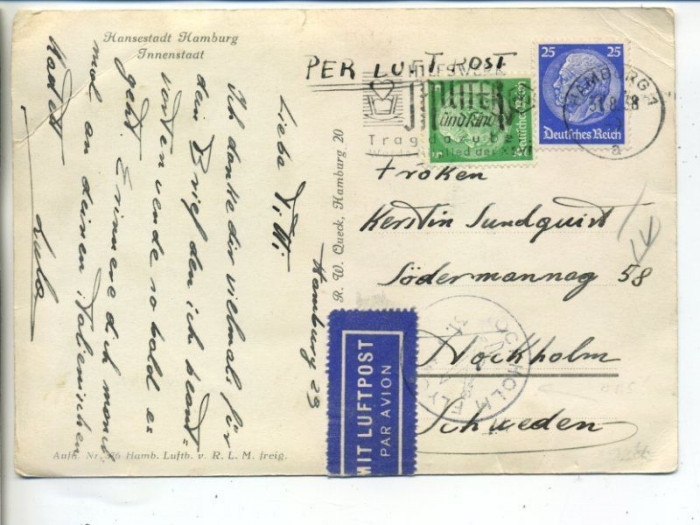 Hansestadt Hamburg
Innenstadt
PER LUFTPOST
HILFSWERK
Mutter
und Kind
Trag dazu
25 25
Deutsches Reich
Deutsches Reich
HAMBURG 1
31.8.38
a
Fröken
Kerstin Sundquist
Södermannag 58
Stockholm
Schweden
14
STOCKHOLM
FLYG
MIT LUFTPOST
PAR AVION
R. W. Queck, Hamburg 20
Hamburg 29
Liebe Titti
Ich danke dir vielmals für
dein Brief den ich beant=
worten werde so bald es
geht. Erinnere dich manch
mal an deinen italienischen
Kadett
Aufn. Nr. Hamb. Luftb. v. R. L. M. freig.